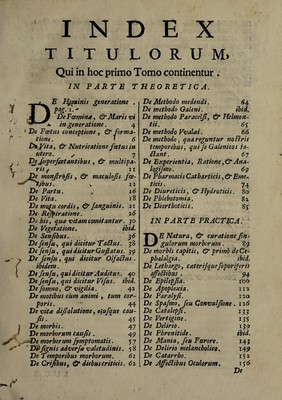 INDEX
TITULORUM,
Qui in hoc primo Tomo continentur.
IN PARTE THEORETICA.
DE Hominis generatione.
pag. 1.
De Fœmina, & Maris vi
in generatione. 2
De Fœtus conceptione, & forma-
tione. 6
De Vita, & Nutricatione fœtus in
utero.
De superfœtantibus, & multipa-
ris, 11
De monstrosis, & maculosis fœ-
tibus. 12
De Partu.
De Vita. 18
De motu cordis, & sanguinis. 21
De Respiratione. 26
De his, quæ vitam comitantur. 30
De Vegetatione. ibid.
De Sensibus. 36
De sensu, qui dicitur Tactus. 38
De sensu, qui dicitur Gustatus. 39
De sensu, qui dicitur Olfactus.
ibidem.
De sensu, qui dicitur Auditus. 40
De sensu, qui dicitur Visus. ibid.
De somno, & vigilia. 42
De motibus cum animi, tum cor-
poris. 44
De vitæ dissolutione, ejusque cau-
sis. 45
De morbis. 47
De morborum causis. 49
De morborum symptomatis. 57
De signis adversæ valetudinis. 58
De Temporibus morborum. 61
De Crisibus, & diebus criticis. 62
De Methodo medendi. 64
De methodo Galeni. ibid.
De methodo Paracelsi, & Helmon-
tii. 65
De methodo Vvalæi. 66
De methodo, qua reguntur nostris
temporibus, qui se Galenicos ja-
ctant. 67
De Experientia, Ratione, & Ana-
logismo. 69
De Pharmatis Catharticis, & Eme-
ticis. 74
De Diureticis, & Hydroticis. 80
De Phlebotomia. 82
De Diorthoticis. 85
IN PARTE PRACTICA.
DE Natura, & curatione sin-
gulorum morborum. 89
De morbis capitis, & primò de Ce-
phalalgia. ibid.
De Lethargo, cæterisque soporiferis
affectibus. 94
De Epilepsia. 100
De Apoplexia. 112
De Paralysi. 120
De Spasmo, seu Convulsione. 126
De Catalepsi. 133
De Vertigine. 135
De Delirio. 130
De Phrenitide. ibid.
De Mania, seu Furore. 143
De Delirio melancholico. 149
De Catarrho. 152
De Affectibus Ocularum. 156
De